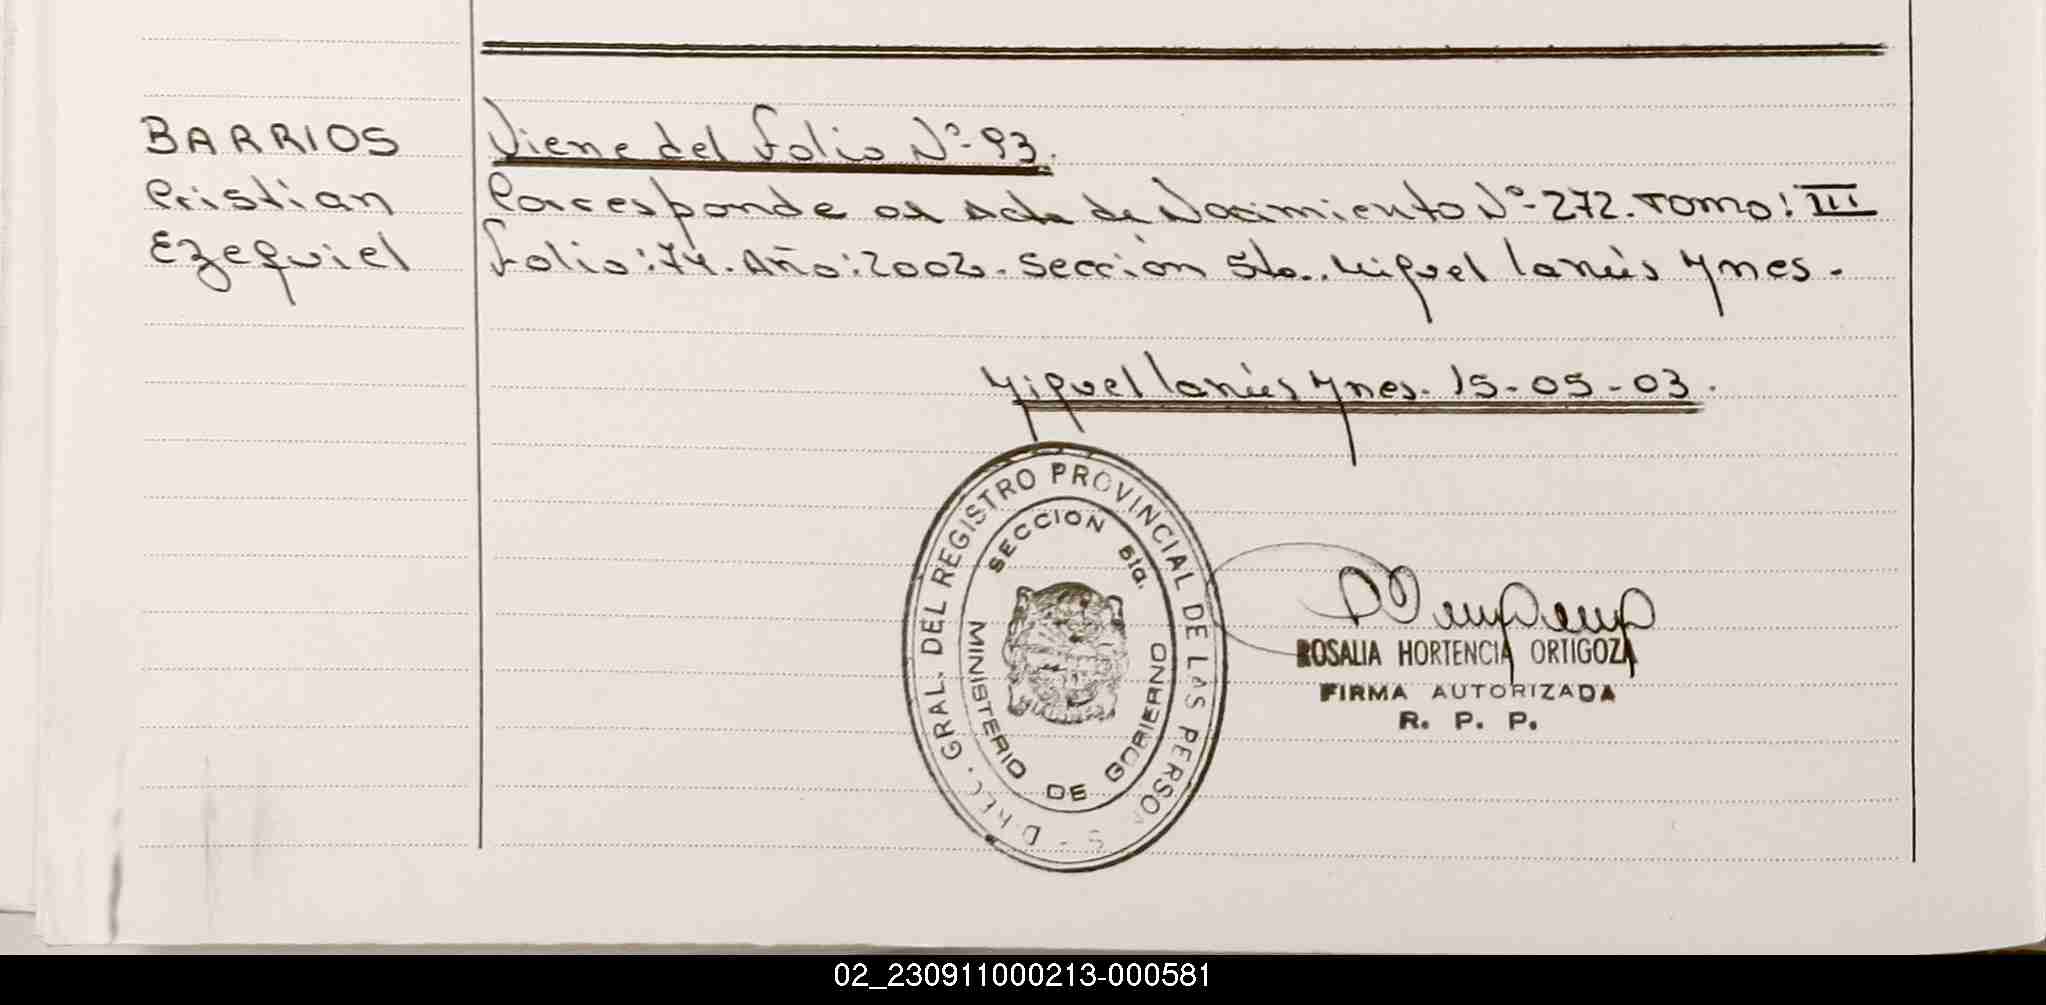 BARRIOS
Cristian
Ezequiel
Viene del folio Nº-93.
Corresponde al Acta de Nacimiento Nº-272. Tomo: III
folio: 74. Año: 2002. Sección 5ta. Miguel Lanús Ynes.
Miguel Lanús Ynes. 15-05-03.
GRAL. DEL REGISTRO PROVINCIAL DE LAS
SECCION 5ta.
MINISTERIO DE GOBIERNO
ROSALIA HORTENCIA ORTIGOZA
FIRMA AUTORIZADA
R. P. P.
02_230911000213-000581